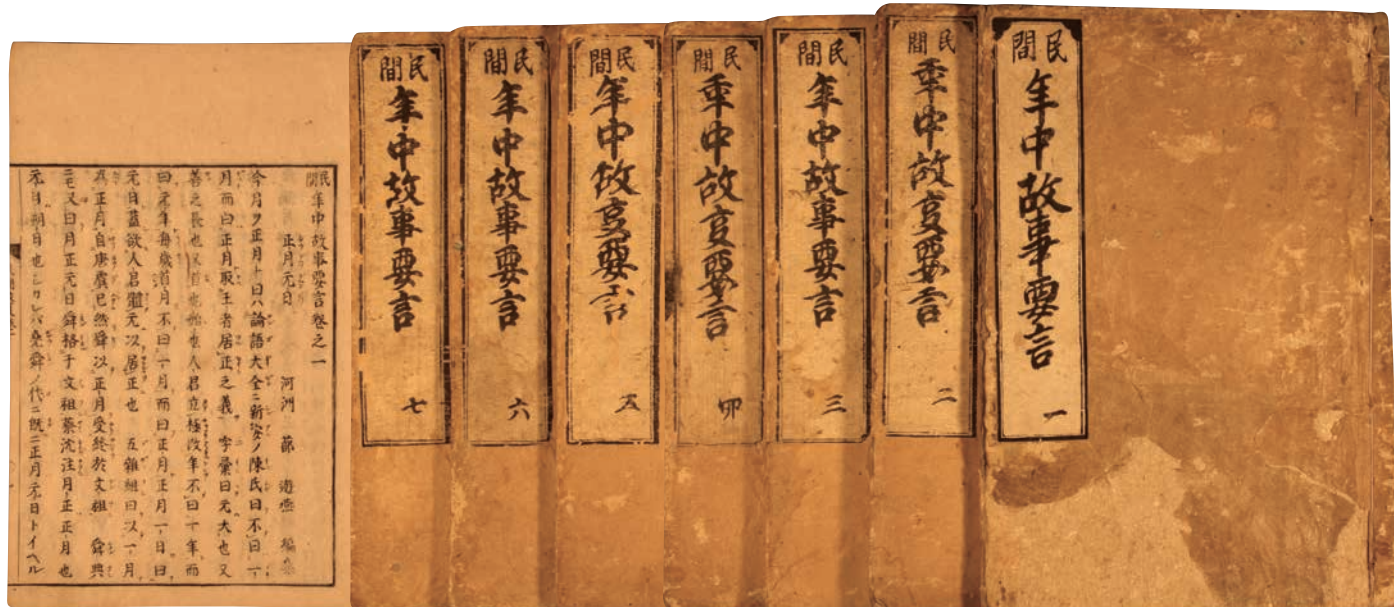 民間 年中故事要言 一
民間 年中故事要言 二
民間 年中故事要言 三
民間 年中故事要言 四
民間 年中故事要言 五
民間 年中故事要言 六
民間 年中故事要言 七
民間年中故事要言卷之一
河州 蔀 遊燕
正月元日
今月ヲ正月ト曰ハ論語大全ニ新安ノ陳氏曰不曰一
月而曰正月取王者居正之義 字彙曰元大也又
善之長也又首也始也人君立極改年不曰一年而
曰元年毎歳首月不曰一月而曰正月正月一日曰
元日蓋欲人君體元以居正也 五雜組曰以一月
為正月自唐虞已然舜以正月受終於文祖 舜典
又曰月正元日舜格于文祖蔡沈注月正正月也
元日朔日也シカレバ堯舜ノ代ニ既ニ正月元日トイヘル